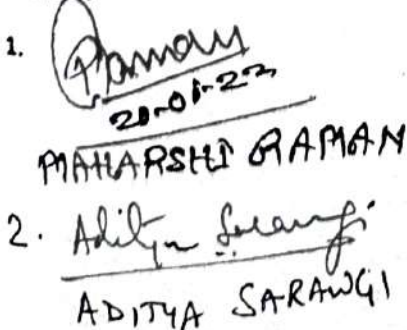 1. Raman
20-01-22
MAHARSHI RAMAN
2. Aditya Sarawgi
ADITYA SARAWGI